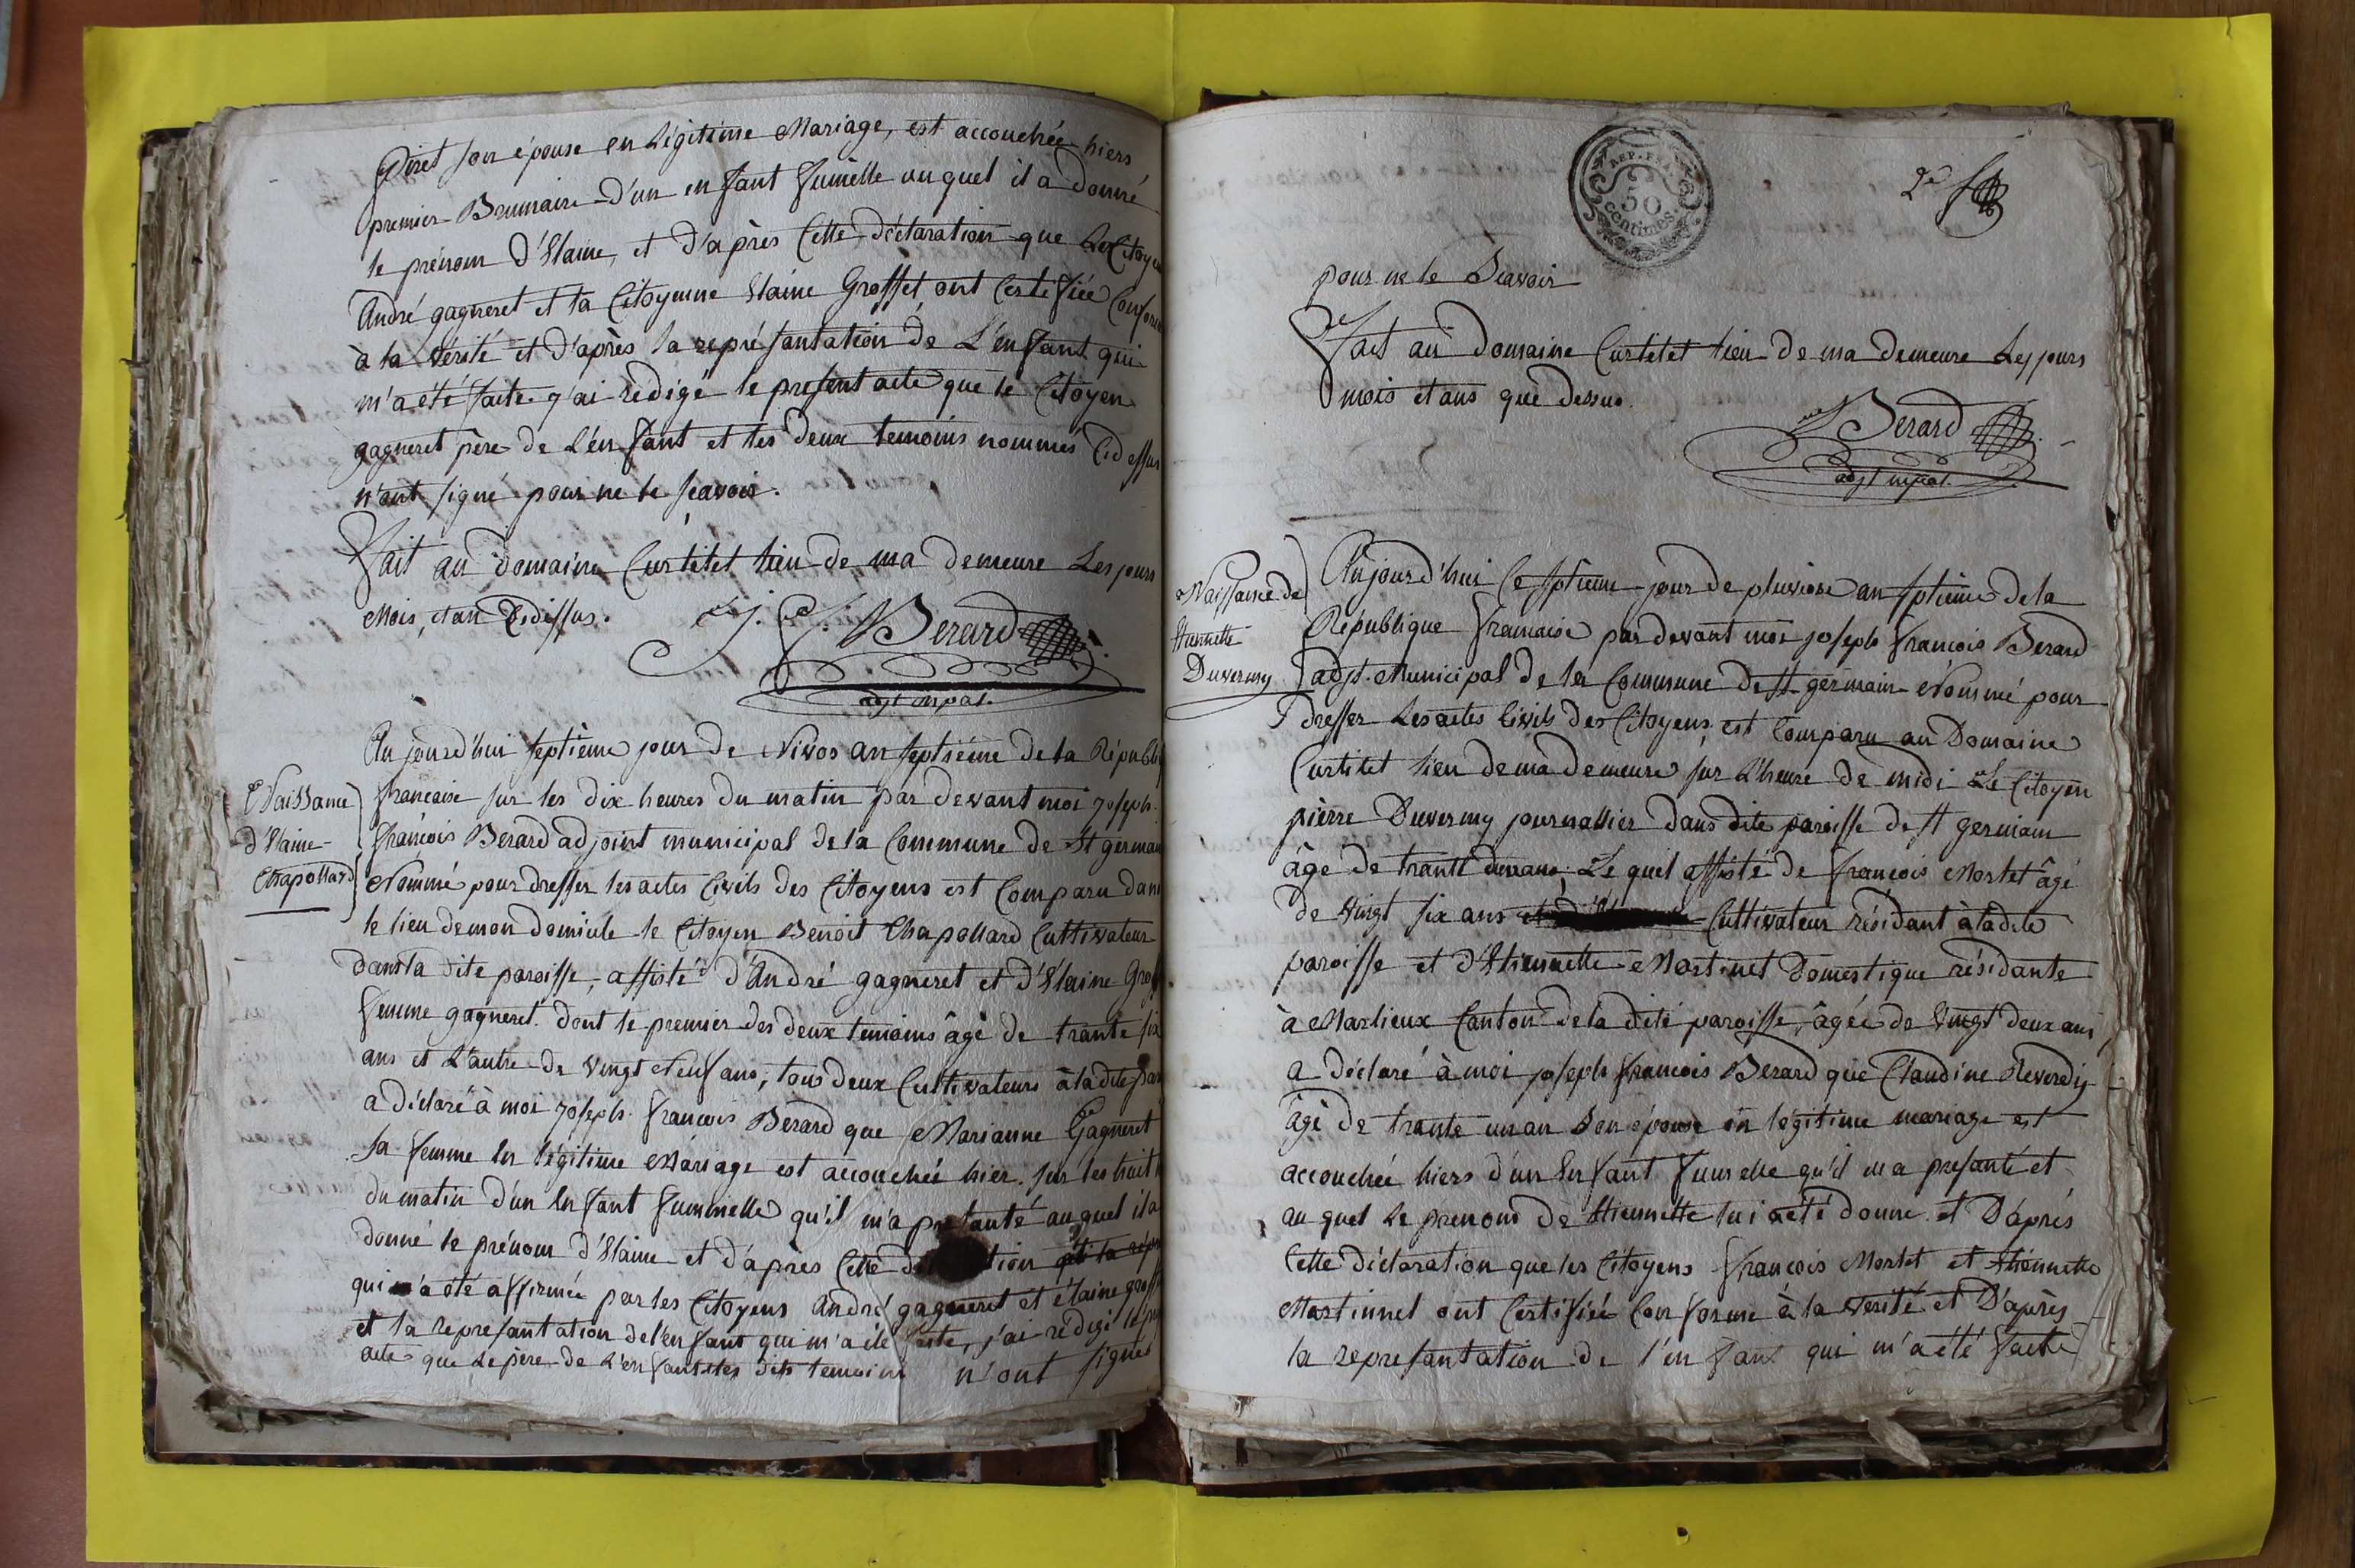 Piret son épouse en Légitime Mariage, est accouchée hiers
premier Brumaire d'un enfant fumelle auquel il a donné
le prénom d'Elaine, et d'après Cette déclaration que Les Citoyens
André gagneret et la Citoyenne Elaine Grosset ont Certifiée Conforme
à la Vérité et d'après la représantation de L'enfant qui
m'a été faite j'ai rédigé le présent acte que le Citoyen
gagneret père de L'enfant et les deux temoins nommés Cidessus
n'ont signé pour ne le scavoir.
Fait au domaine Curtelet lieu de ma demeure Les jours
Mois, et an Cidessus.
J. F. Berard
adjt mpal.
Naissance
d'Elaine
Chapollard
Aujourd'hui septième jour de Nivos an septième de la Républi
francaise sur les dix heures du matin par devant moi joseph
francois Berard adjoint municipal de la Commune de St german
Nommé pour dresser les actes Civils des Citoyens est Comparu dans
le lieu de mon domicile le Citoyen Benoit Chapollard Cultivateur
dans la dite paroisse, assisté d'André gagneret et d'Elaine Gross
femme gagneret dont le premier des deux temoins âgé de trante six
ans et L'autre de vingt Neuf ans, tous deux Cultivateurs à la dite par
a déclaré à moi joseph francois Berard que Marianne Gagneret
sa femme en légitime Mariage est accouchée hier sur les huit h
du matin d'un enfant fummelle qu'il m'a presanté auquel il a
donné le prénom d'Elaine et d'après Cette d tion et la repr
qui m'a été affirmée par les Citoyens André gagneret et élaine gross
et la represantation de l'enfant qui m'a été faite, j'ai rédigé le pre
acte que Le père de L'enfant et les dits temoins n'ont signés
2e
REP. FRA.
50
centimes.
pour ne le Scavoir
Fait au Domaine Curtelet lieu de ma demeure Les jours
mois et ans que dessus.
Berard
adjt mpal.
Naissance de
Etiennette
Duvernay
Aujourd'hui Ce septieme jour de pluviose an septieme de la
République francaise par devant moi joseph francois Berard
adjt. Municipal de la Commune de St germain Nommé pour
dresser Les actes Civils des Citoyens est Comparu au Domaine
Curtilet lieu de ma demeure sur L'heure de midi Le Citoyen
pierre Duverny journallier dans dite paroisse de St germain
âgé de trante deux ans, Le quel assisté de francois Mortet âgé
de vingt six ans Cultivateur résidant à la dite
paroisse et d'Etiennette Martinet Domestique résidante
à Marlieux Canton de la dite paroisse, âgée de vingt deux ans
a déclaré à moi joseph francois Berard que Claudine Reverdy
âgé de trante un an Son épouse en légitime mariage est
accouchée hiers d'un enfant fumelle qu'il m'a presanté et
au quel Le prenom de Etiennette lui a été donné et D'après
Cette déclaration que les Citoyens francois Mortet et Etiennette
Martinnet ont Certifiée Conforme à la Verité et D'après
la represantation de l'enfant qui m'a été faite